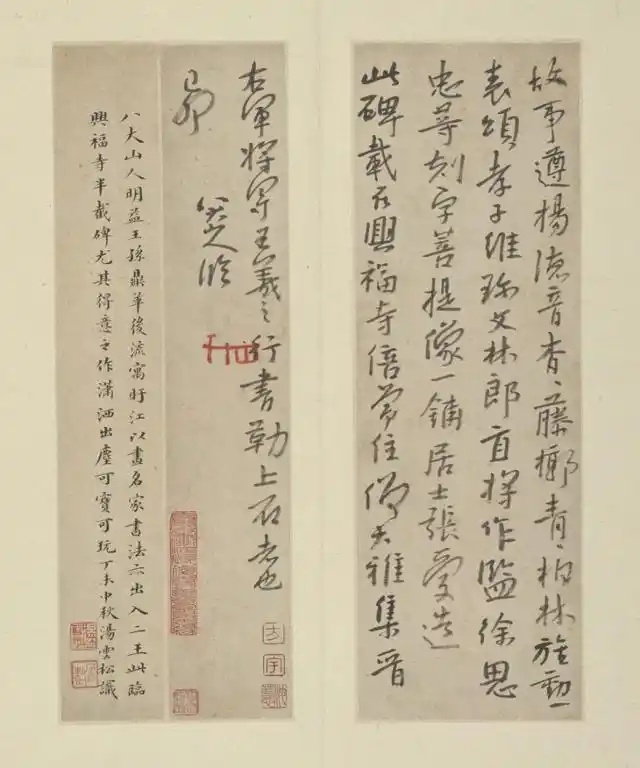 故事遵楊德音杳〻藤擲青〻柏林旌勳一
表頌孝子維孫文林郎直將作監徐思
忠等刻字菩提像一鋪居士張愛造
此碑載在興福寺倍常住僧大雅集晉
右軍將軍王羲之行書勒上石者也
己卯
八大山人臨
八大山人明益王孫鼎革後流寓盱江以畫名家書法亦出入二王此臨
興福寺半截碑尤其得意之作瀟洒出塵可寶可玩丁未中秋湯雲松識